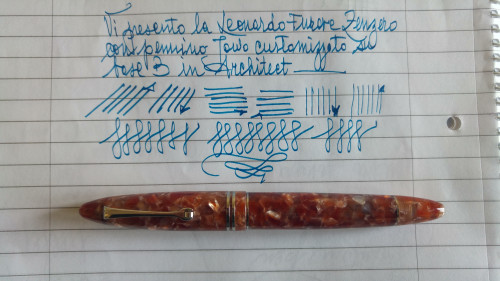 Vi presento la Leonardo Furore Zenzero
con pennino Jowo customizzato su
base B in Architect